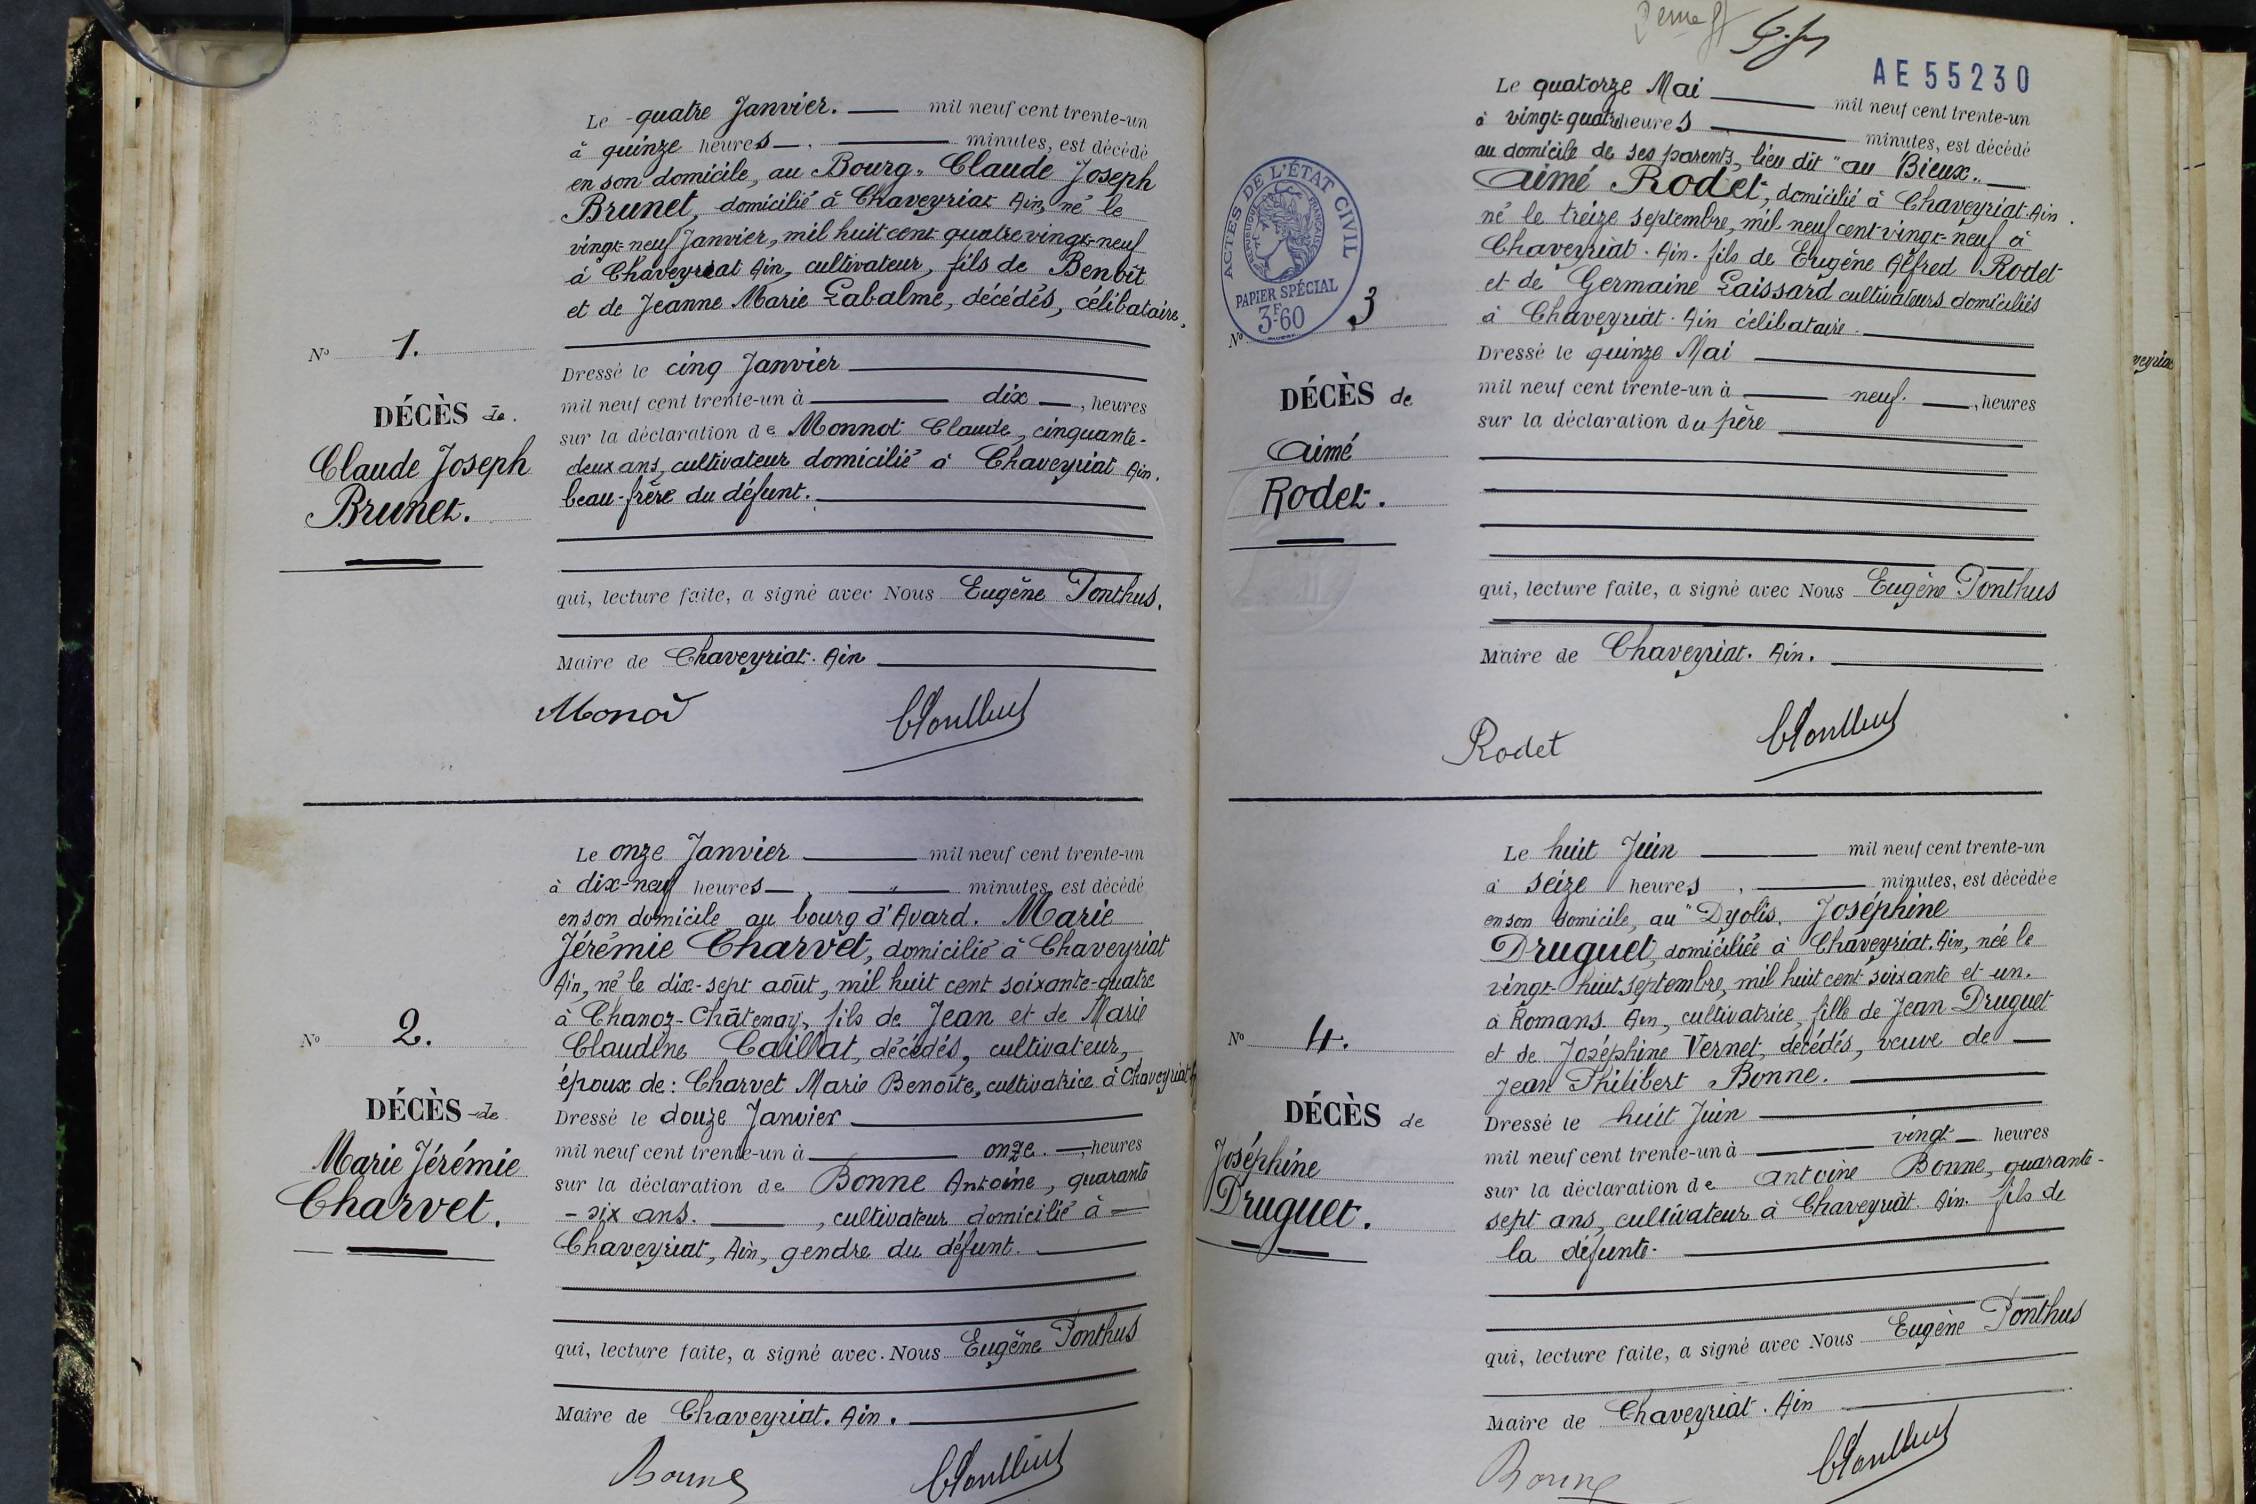 Le quatre Janvier. mil neuf cent trente-un
à quinze heures, minutes, est décédé
en son domicile, au Bourg. Claude Joseph
Brunet, domicilié à Chaveyriat Ain, né le
vingt-neuf Janvier, mil huit cent quatre vingt-neuf
à Chaveyriat Ain, cultivateur, fils de Benoît
et de Jeanne Marie Labalme, décédés, célibataire,
No 1.
Dressé le cinq Janvier
mil neuf cent trente-un à dix, heures
DÉCÈS de
sur la déclaration de Monnot Claude, cinquante-
Claude Joseph
deux ans, cultivateur domicilié à Chaveyriat Ain.
Brunet.
beau-frère du défunt.
qui, lecture faite, a signé avec Nous Eugène Ponthus.
Maire de Chaveyriat. Ain
Le onze Janvier mil neuf cent trente-un
à dix-neuf heures, " minutes, est décédé
en son domicile au bourg d'Avard. Marie
Jérémie Charvet, domicilié à Chaveyriat
Ain, né le dix-sept août, mil huit cent soixante-quatre
à Chanoz-Châtenay, fils de Jean et de Marie
No 2.
Claudine Caillat, décédés, cultivateur,
époux de: Charvet Marie Benoîte, cultivatrice à Chaveyriat
DÉCÈS de
Dressé le douze Janvier
Marie Jérémie
mil neuf cent trente-un à onze. heures
Charvet.
sur la déclaration de Bonne Antoine, quarante
-six ans. , cultivateur domicilié à
Chaveyriat, Ain, gendre du défunt.
qui, lecture faite, a signé avec Nous Eugène Ponthus
Maire de Chaveyriat. Ain.
Bonne
2eme
AE55230
Le quatorze Mai mil neuf cent trente-un
à vingt-quatre heures minutes, est décédé
au domicile de ses parents, lieu dit "au Bieux.
Aimé Rodet, domicilié à Chaveyriat. Ain.
né le treize septembre, mil neuf cent vingt-neuf à
Chaveyriat. Ain. fils de Eugène Alfred Rodet
et de Germaine Laissard cultivateurs domiciliés
à Chaveyriat. Ain célibataire.
ACTES DE L'ÉTAT CIVIL
RÉPUBLIQUE FRANÇAISE
PAPIER SPÉCIAL
3F60
No 3
Dressé le quinze Mai
mil neuf cent trente-un à neuf. , heures
DÉCÈS de
sur la déclaration du père
Aimé
Rodet.
qui, lecture faite, a signé avec Nous Eugène Ponthus
Maire de Chaveyriat. Ain.
Rodet
Le huit Juin mil neuf cent trente-un
à seize heures, minutes, est décédée
en son domicile, au "Dyolis. Joséphine
Druguet, domiciliée à Chaveyriat. Ain, née le
vingt-huit septembre, mil huit cent soixante et un.
à Romans. Ain, cultivatrice, fille de Jean Druguet
No 4.
et de Joséphine Vernet, décédés, veuve de
Jean Philibert Bonne.
DÉCÈS de
Dressé le huit Juin
Joséphine
mil neuf cent trente-un à vingt heures
Druguet.
sur la déclaration de Antoine Bonne, quarante-
sept ans, cultivateur à Chaveyriat. Ain. fils de
la défunte.
qui, lecture faite, a signé avec Nous Eugène Ponthus
Maire de Chaveyriat. Ain
Bonne